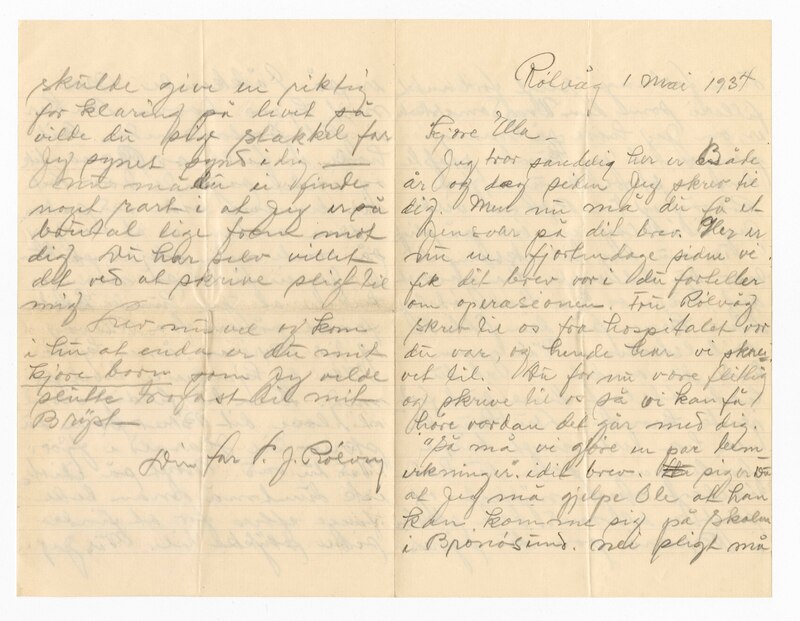 Rølvåg 1 Mai 1934
Kjøre Ella -
Jeg tror sandelig her er Både
år og dag siden Jeg skrev til
dig. Men nu må du få et
gensvar på dit brev. Her er
nu en fjortendage siden vi
fik dit brev vor i du forteller
om operaseonen. Fru Rølvåg
skrev til os fra hospitalet vor
du var, og hende har vi skre-
vet til. Du før nu være flittig
og skrive til os så vi kan få
høre vordan det går med dig.
"Så må vi gjøre en par bem
erkninger" i dit brev. siger
at Jeg må gjelpe Ole at han
kan komme sig på Skolen
i Bronøsund. nei sligt må
skulde give en riktig
for klaring på livet så
vilde du sige Stakkel far
Jeg synes synd i dig —
Nu må du ei finde
noget rart i at Jeg er så
bruttal lige frem mot
dig. Du har selv villet
det ved at skrive sligt til
mig
Lev nu vel og kom
i hu at enda er du mit
kjøre barn som Jeg vilde
slutte trofast til mit
Bryst
Din far P. J. Rølvåg